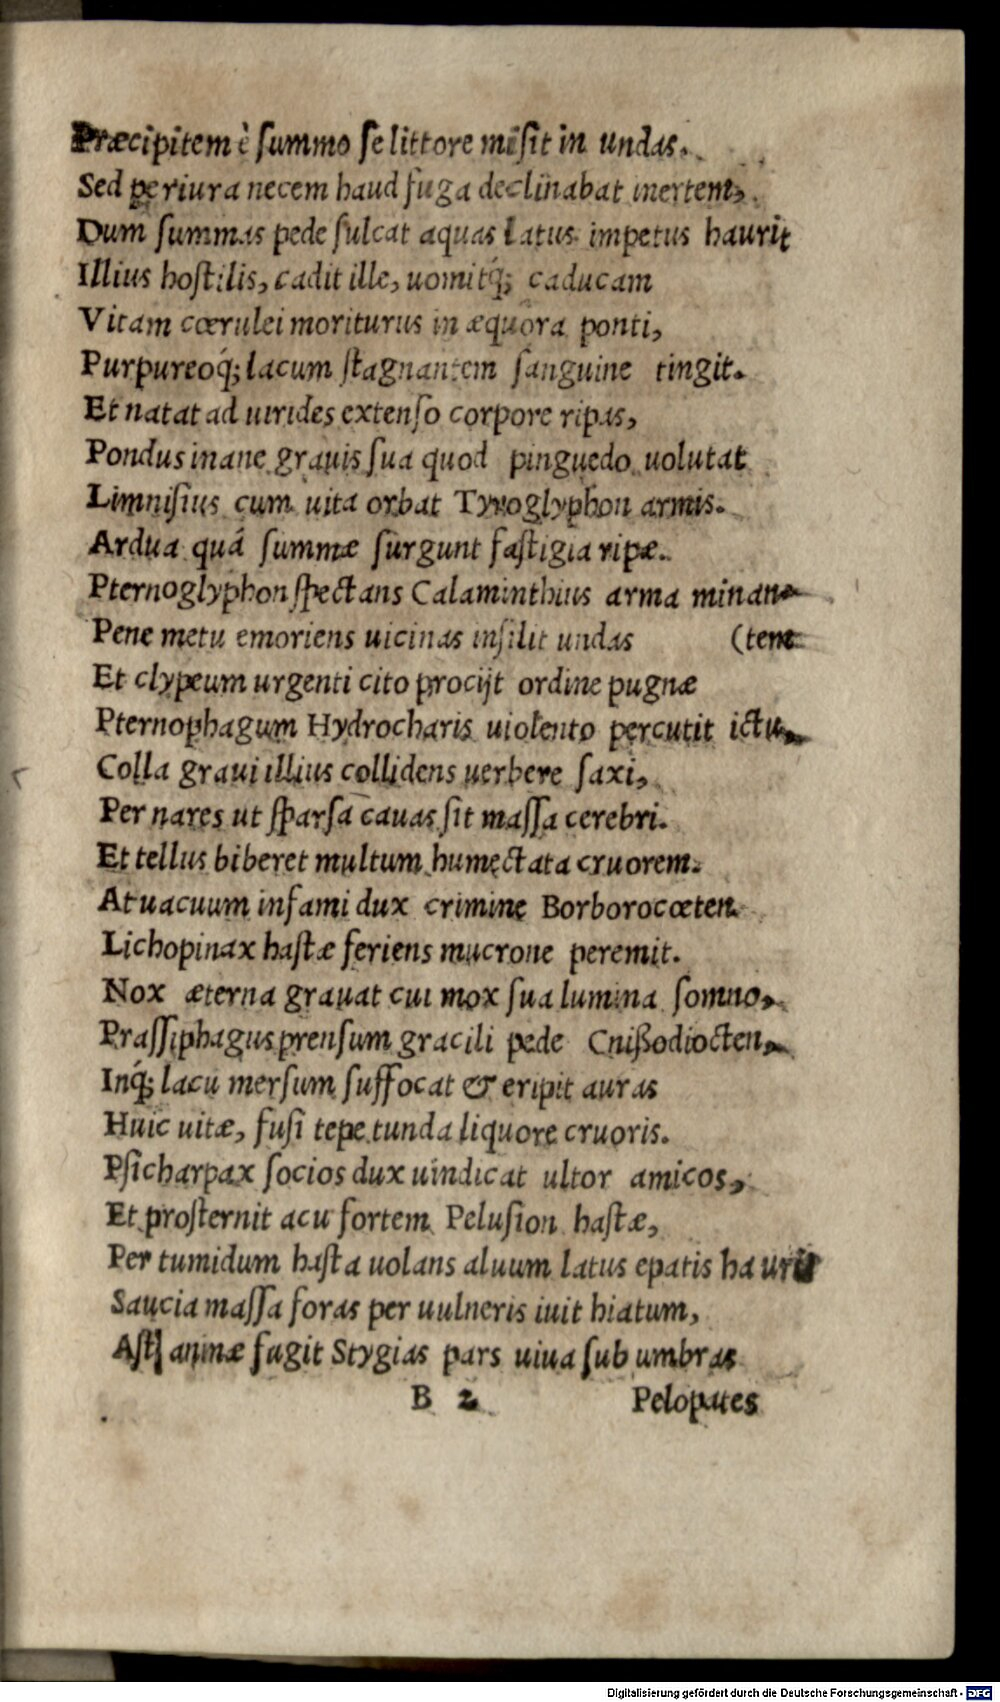 Præcipitem è ſummo ſe littore miſit in undas.
Sed periura necem haud fuga declinabat inertem,
Dum ſummas pede ſulcat aquas latus impetus haurit
Illius hoſtilis, cadit ille, uomitq́; caducam
Vitam cœrulei moriturus in æquora ponti,
Purpureoq́; lacum ſtagnantem ſanguine tingit.
Et natat ad uirides extenſo corpore ripas,
Pondus inane grauis ſua quod pinguedo uolutat
Limniſius cum uita orbat Tyroglyphon armis.
Ardua quá ſummæ ſurgunt faſtigia ripæ.
Pternoglyphon ſpectans Calaminthius arma minan-
Pene metu emoriens uicinas inſilit undas (tem
Et clypeum urgenti cito procijt ordine pugnæ
Pternophagum Hydrocharis uiolento percutit ictu,
Colla graui illius collidens uerbere ſaxi,
Per nares ut ſparſa cauas ſit maſſa cerebri.
Et tellus biberet multum humectata cruorem.
At uacuum infami dux crimine Borborocœten
Lichopinax haſtæ feriens mucrone peremit.
Nox æterna grauat cui mox ſua lumina ſomno,
Praſſiphagus prenſum gracili pede Cnißodiocten,
Inq́; lacu merſum ſuffocat & eripit auras
Huic uitæ, fuſi tepe tunda liquore cruoris.
Pſicharpax ſocios dux uindicat ultor amicos,
Et proſternit acu fortem Peluſion haſtæ,
Per tumidum haſta uolans aluum latus epatis haurit
Saucia maſſa foras per uulneris iuit hiatum,
Aſt animæ fugit Stygias pars uiua ſub umbras
B 2 Pelopates
Digitalisierung gefördert durch die Deutsche Forschungsgemeinschaft - DFG